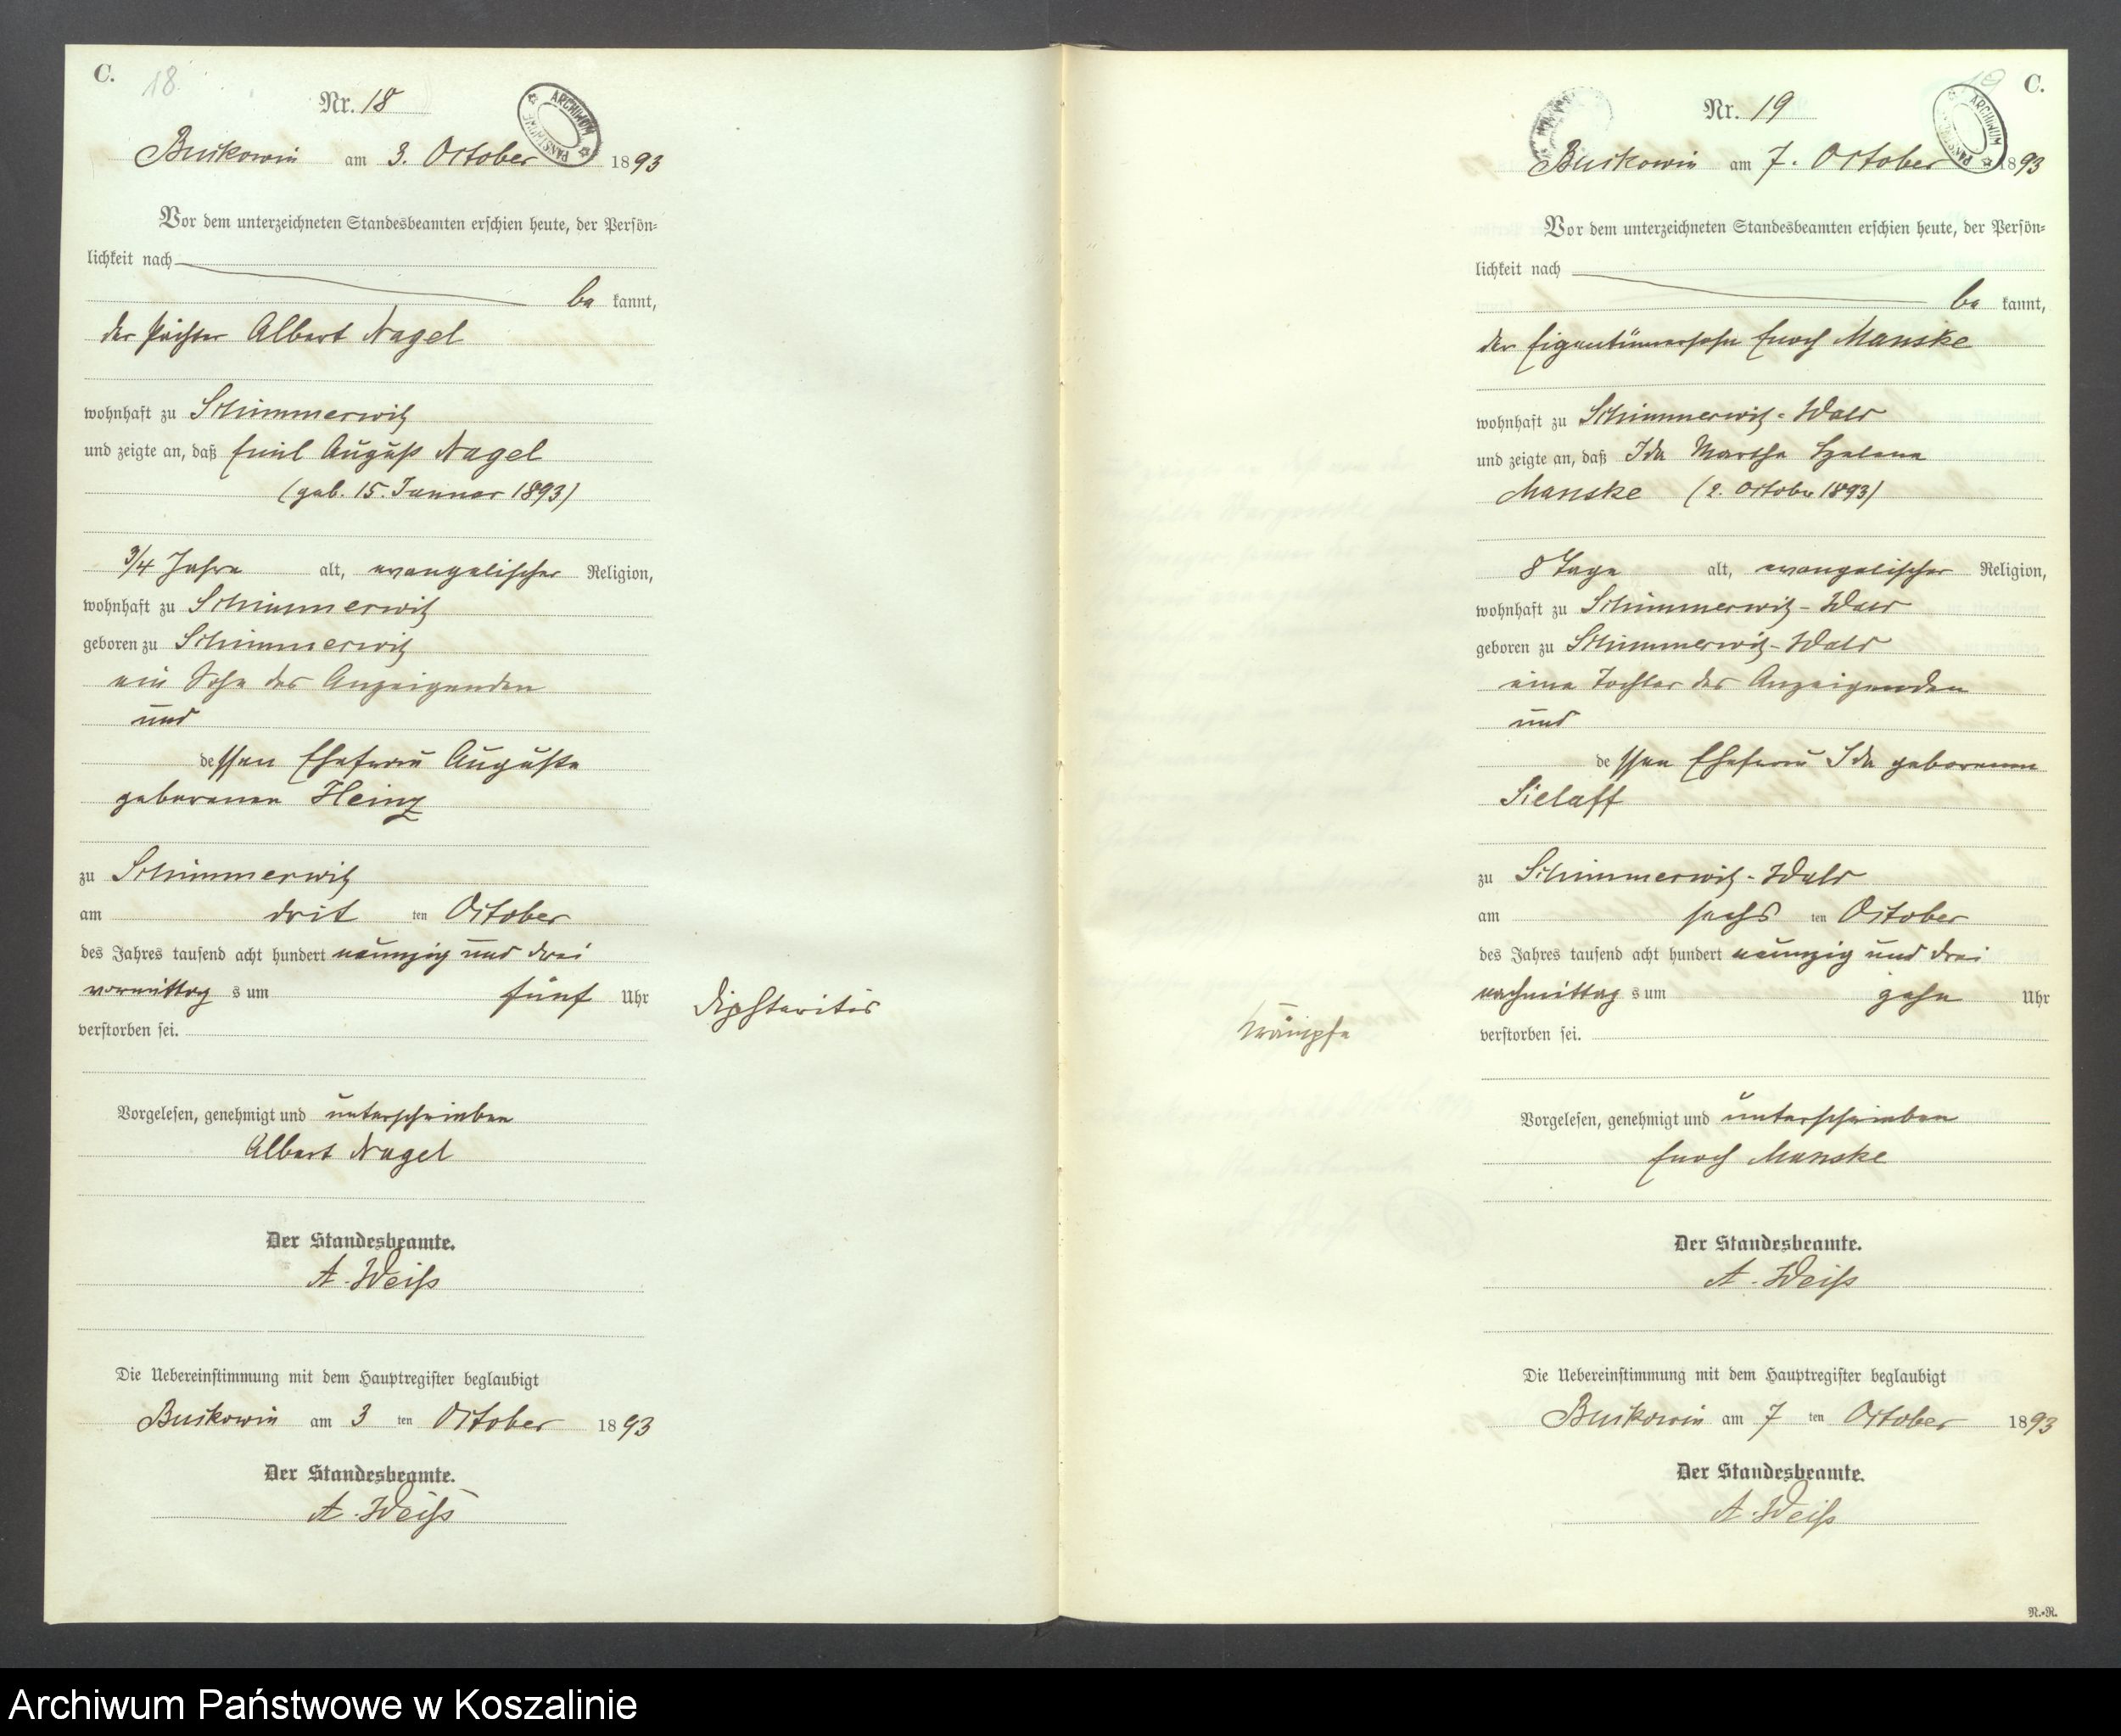 C.
18.
Nr. 18
ARCHIWUM PAŃSTWOWE
Buckowin am 3. October 1893
Vor dem unterzeichneten Standesbeamten erschien heute, der Persön-
lichkeit nach
be kannt,
der Pächter Albert Nagel
wohnhaft zu Schimmerwitz
und zeigte an, daß Emil August Nagel
(geb. 15. Januar 1893)
3/4 Jahre alt, evangelischer Religion,
wohnhaft zu Schimmerwitz
geboren zu Schimmerwitz
ein Sohn des Anzeigenden
und
dessen Ehefrau Auguste
geborenen Heinz
zu Schimmerwitz
am dritten October
des Jahres tausend acht hundert neunzig und drei
vormittags um fünf Uhr
verstorben sei.
Diphteritis
Vorgelesen, genehmigt und unterschrieben
Albert Nagel
Der Standesbeamte.
A. Weiß
Die Uebereinstimmung mit dem Hauptregister beglaubigt
Buckowin am 3 ten October 1893
Der Standesbeamte.
A. Weiß
19
C.
Nr. 19
ARCHIWUM PAŃSTWOWE
Buckowin am 7. October 1893
Vor dem unterzeichneten Standesbeamten erschien heute, der Persön-
lichkeit nach
be kannt,
der Eigentümersohn Enoch Manske
wohnhaft zu Schimmerwitz-Wald
und zeigte an, daß Ida Martha Helene
Manske (2. October 1893)
8 Tage alt, evangelischer Religion,
wohnhaft zu Schimmerwitz-Wald
geboren zu Schimmerwitz-Wald
eine Tochter des Anzeigenden
und
dessen Ehefrau Ida geborenen
Sielaff
zu Schimmerwitz-Wald
am sechsten October
des Jahres tausend acht hundert neunzig und drei
nachmittags um zehn Uhr
verstorben sei.
Krämpfe
Vorgelesen, genehmigt und unterschrieben
Enoch Manske
Der Standesbeamte.
A. Weiß
Die Uebereinstimmung mit dem Hauptregister beglaubigt
Buckowin am 7 ten October 1893
Der Standesbeamte.
A. Weiß
N.-R.
Archiwum Państwowe w Koszalinie